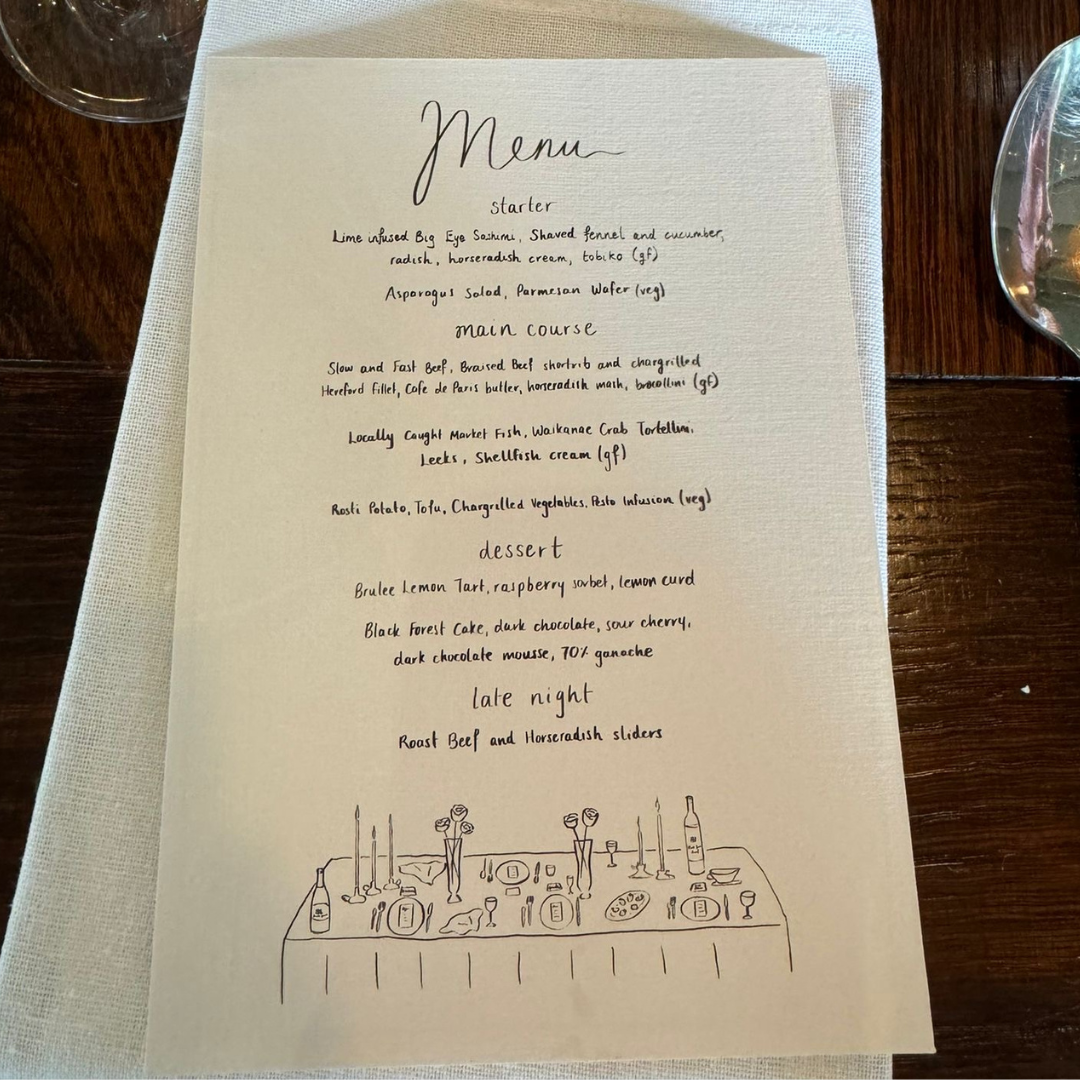 Menu
starter
Lime infused Big Eye Sashimi, Shaved fennel and cucumber,
radish, horseradish cream, tobiko (gf)
Asparagus Salad, Parmesan Wafer (veg)
main course
Slow and Fast Beef, Braised Beef shortrib and chargrilled
Hereford Fillet, Cafe de Paris butter, horseradish mash, brocollini (gf)
Locally Caught Market Fish, Waikanae Crab Tortellini,
Leeks, Shellfish cream (gf)
Rosti Potato, Tofu, Chargrilled Vegetables, Pesto Infusion (veg)
dessert
Brulee Lemon Tart, raspberry sorbet, lemon curd
Black Forest Cake, dark chocolate, sour cherry,
dark chocolate mousse, 70% ganache
late night
Roast Beef and Horseradish sliders